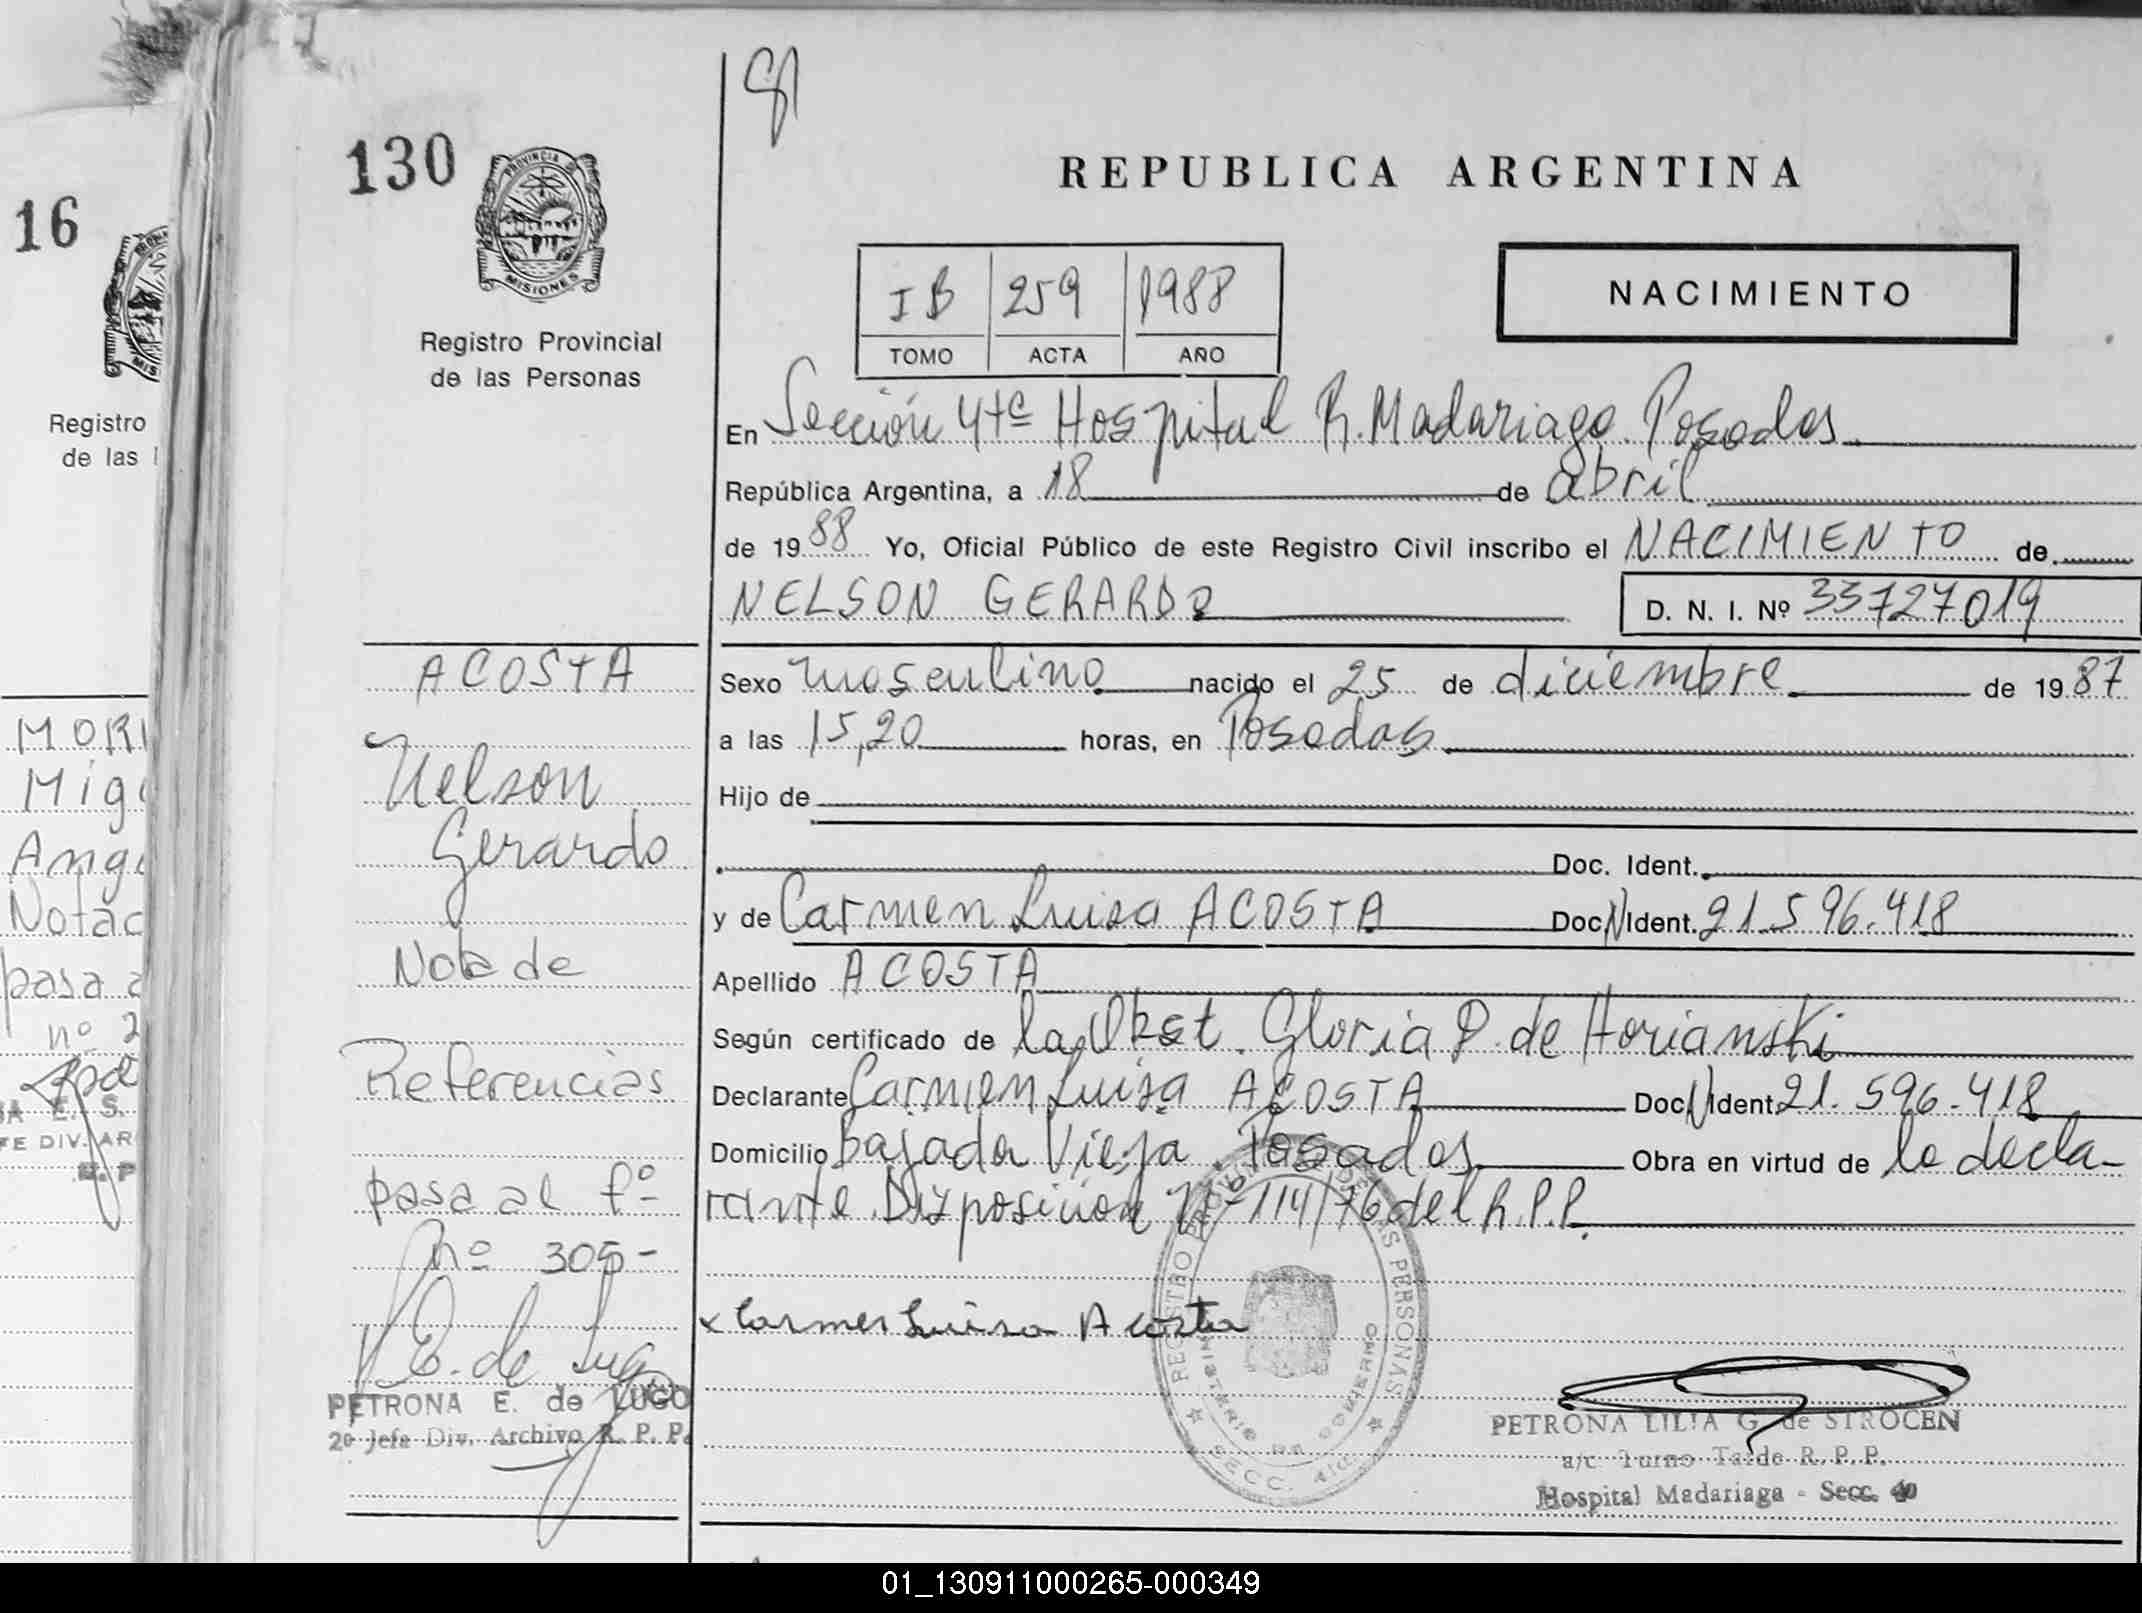 16
Registro
de las
MORI
Mig
Ange
Notac
pasa a
nº 2
E. S.
FE DIV. AR
R. P
130
PROVINCIA D
MISIONES
Registro Provincial
de las Personas
ACOSTA
Nelson
Gerardo
Nota de
Referencias
pasa al fº
nº 305-
E. de Lugo
PETRONA E. de LUGO
2º Jefe Div. Archivo R. P. P.
REPUBLICA ARGENTINA
I B 259 1988
TOMO ACTA AÑO
NACIMIENTO
En Sección 4ta Hospital R. Madariaga. Posadas
República Argentina, a 18 de abril
de 1988 Yo, Oficial Público de este Registro Civil inscribo el NACIMIENTO de
NELSON GERARDO D. N. I. Nº 33727019
Sexo masculino nacido el 25 de diciembre de 1987
a las 15,20 horas, en Posadas
Hijo de
Doc. Ident.
y de Carmen Luisa ACOSTA Doc N Ident. 21.596.418
Apellido ACOSTA
Según certificado de la Obst. Gloria P. de Horianski
Declarante Carmen Luisa ACOSTA Doc N Ident. 21.596.418
Domicilio Bajada Vieja Posadas Obra en virtud de la decla-
rante. Disposición Nº 114/76 del R.P.P.
x Carmen Luisa Acosta
REGISTRO PROVINCIAL DE LAS PERSONAS
MINISTERIO DE GOBIERNO
SECC. 4ta
PETRONA LILIA G. de STROCEN
a/c Turno Tarde R. P. P.
Hospital Madariaga - Secc. 40
01_130911000265-000349